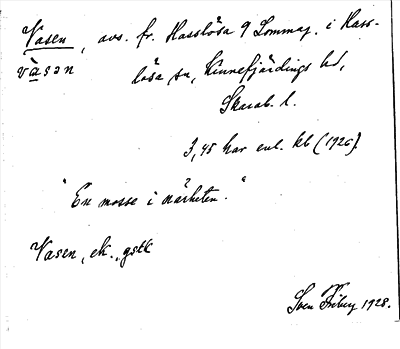 Vasen, avs. fr. Hasslösa 9 Sommag. i Hass-
vàsən lösa sn, Kinnefjärdings hd,
Skarab. l.
3,45 har enl. kb (1926).
"En mosse i närheten."
Vasen, ek., gstk
Sven Friberg 1928.